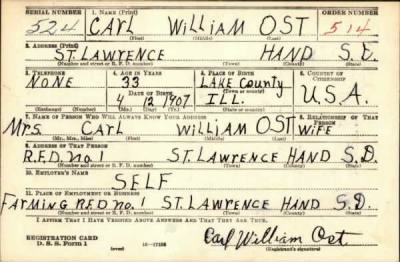 SERIAL NUMBER 1. NAME (Print) ORDER NUMBER
524 CARL WILLIAM OST 514
(First) (Middle) (Last)
2. ADDRESS (Print)
ST. LAWRENCE HAND S.D.
(Number and street or R. F. D. number) (Town) (County) (State)
3. TELEPHONE 4. AGE IN YEARS 5. PLACE OF BIRTH 6. COUNTRY OF CITIZENSHIP
NONE 33 LAKE County
DATE OF BIRTH (Town or county)
4 12 1907 ILL. U.S.A.
(Exchange) (Number) (Mo.) (Day) (Yr.) (State or country)
7. NAME OF PERSON WHO WILL ALWAYS KNOW YOUR ADDRESS 8. RELATIONSHIP OF THAT PERSON
Mrs. CARL WILLIAM OST WIFE
(Mr., Mrs., Miss) (First) (Middle) (Last)
9. ADDRESS OF THAT PERSON
R.F.D. No. 1 ST. LAWRENCE HAND S.D.
(Number and street or R. F. D. number) (Town) (County) (State)
10. EMPLOYER'S NAME
SELF
11. PLACE OF EMPLOYMENT OR BUSINESS
FARMING R.F.D no. 1 ST. LAWRENCE HAND S.D.
(Number and street or R. F. D. number) (Town) (County) (State)
I AFFIRM THAT I HAVE VERIFIED ABOVE ANSWERS AND THAT THEY ARE TRUE.
REGISTRATION CARD
D. S. S. Form 1 (over) Carl William Ost
(Registrant's signature)